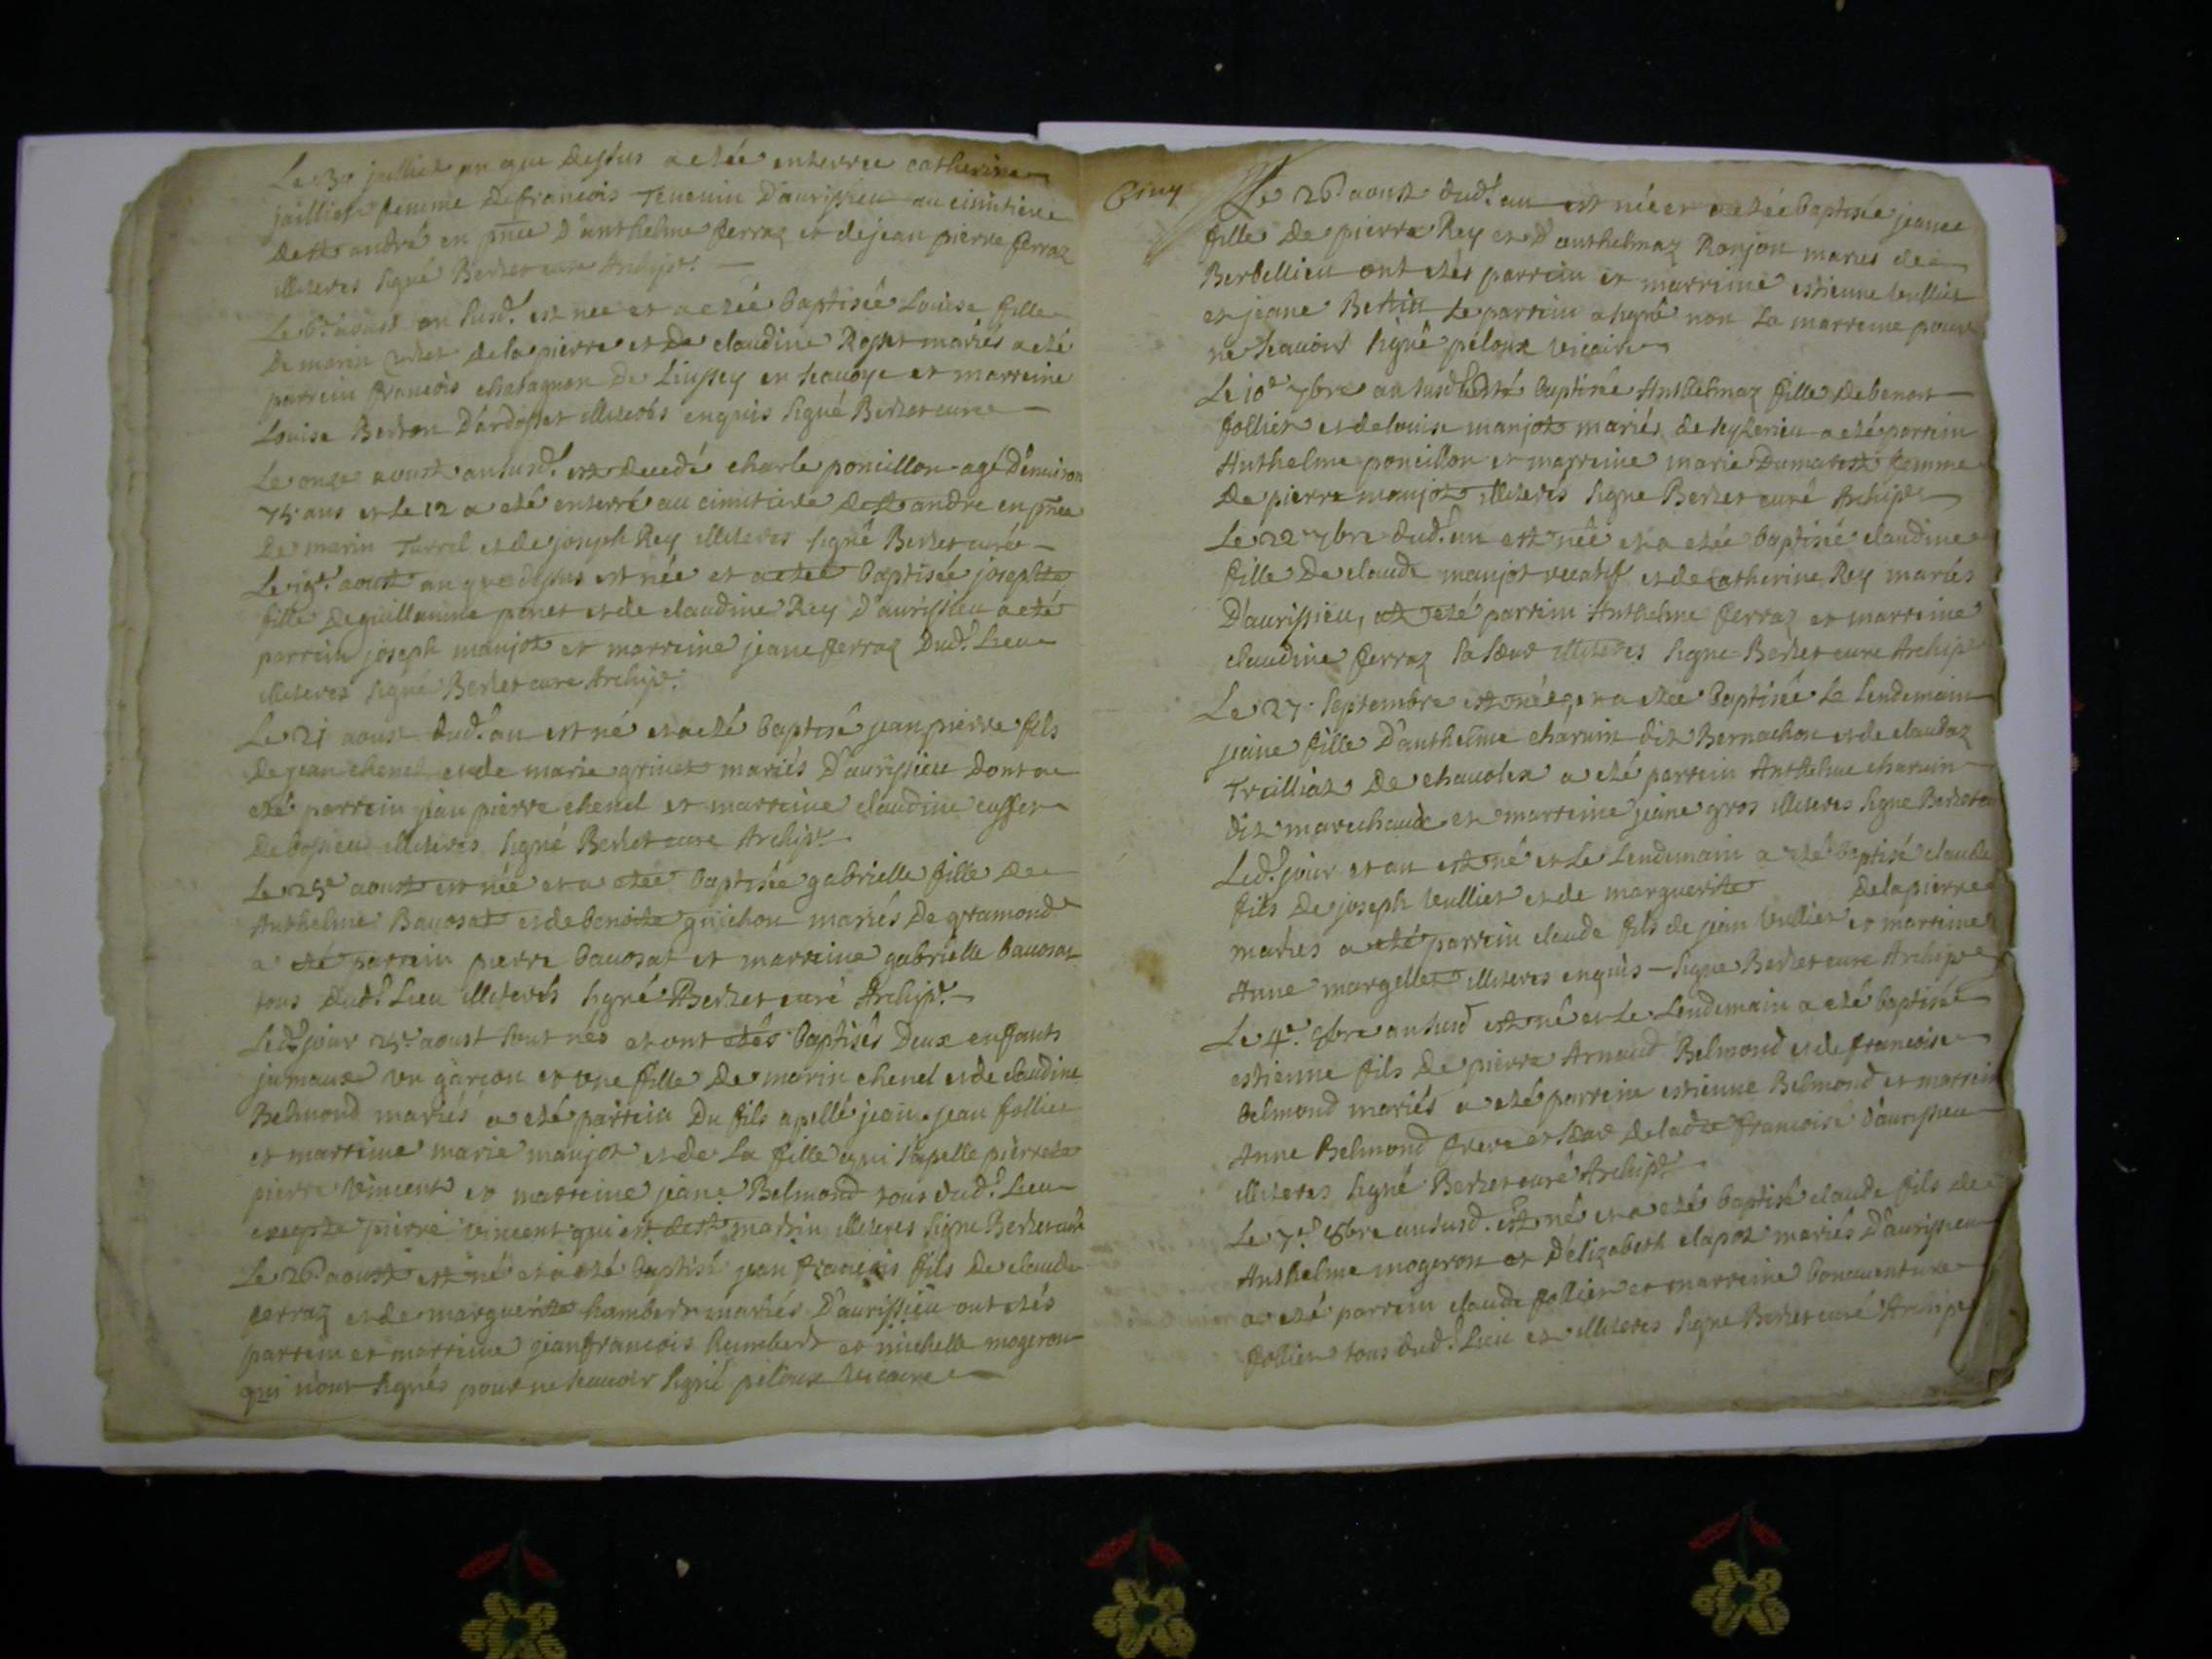 Le 30 juilliet an que dessus a etée enterrée catherine
jaillet femme de francois Tenenin D'aurissieu au cimitiere
de st andré en pnce D'anthelme ferraz et de jean pierre ferraz
illiteres signé Berzet cure Archipr.
Le 6e aoust an susd. est nee et a etée baptisée Louise fille
De marin de la pierre et De claudine Rosset mariés a eté
parrein francois chatagnon De Linssey en sauoye et marreine
Louise Berton D'ardosset illiterés enquis signé Berzet cure
Le onze aoust an susd. est decedé charle poncillon agé D'enuiron
75 ans et le 12 a eté enterré au cimitiere de st andre en pnce
De marin Turrel et de joseph Rey illiteres signé Berzet curé
Le 19e aoust an que dessus est née et a etée baptisée josephte
fille De guillaume penet et de claudine Rey D'aurissieu a eté
parrein joseph manjot et marreine jeane ferraz Dud. Lieu
illiteres signé Berzet cure Archipr.
Le 21 aoust dud. an est né et a eté baptisé jean pierre fils
De jean chenel et de marie grinet mariés D'aurissieu Dont a
eté parrein jean pierre chenel et marreine claudine
De bossieu illiteres signé Berzet cure Archipr
Le 25e aoust est née et a etée baptisée gabrielle fille De
Anthelme Bauosat et de benoite guichon mariés De gramond
a eté parrein pierre bauosat et marreine gabrielle bauosat
tous Dud. Lieu illiterés signé Berzet curé Archipr.
Led. jour 25e aoust sont nés et ont etés baptisés Deux enfants
jumaux un garcon et une fille De marin chenel et de claudine
Belmond mariés a eté parrein Du fils apellé jean jean follier
et marreine marie manjot et de La fille qui s'apelle pierrete
pierre Vincent et marreine jeane Belmond tous dud. Lieu
exepte pierre vincent qui est de st martin illiteres signe Berzet curé
Le 26e aoust est né et a eté baptisé jean francois fils De claude
ferraz et de marguerite humbert mariés D'aurissieu ont etés
parrein et marreine jean francois humbert et michelle mogeron
qui n'ont signés pour ne scauoir signé peloux vicaire
Le 26e aoust dud. an est née et a etée baptisée jeane
fille De pierre Rey et D'anthelmaz Ronjon maries de
Berbellieu ont etés parrein et marreine estienne vulliet
et jeane Bettin Le parrein a signé non La marreine pour
ne scauoir signé peloux vicaire
Le 10e 7bre an susd. baptisée Anthelmaz fille De benoit
follier et de louise manjot mariés de syzerieu a eté parrein
Anthelme poncillon et marreine marie Dumarest femme
De pierre manjot illiterés signe Berzet curé Archipr
Le 22 7bre dud. an est née et a etée baptisée claudine
fille De claude manjot et de Catherine Rey mariés
D'aurissieu, a eté parrein Anthelme ferraz et marreine
claudine ferraz sa sœur illiteres signe Berzet cure Archipr
Le 27 septembre est née et a etée baptisée Le lendemain
jeane fille D'anthelme charuin dit Bernachon et de claudaz
Trilliat De chauolex a eté parrein Anthelme charuin
dit marechaud et marreine jeane gros illiteres signe Berzet
Led. jour et an est né et Le Lendemain a eté baptisé claude
fils De joseph vulliet et de marguerite De la pierre
mariés a eté parrein claude fils de jean vulliet et marreine
Anne margellet illiteres enquis signe Berzet cure Archipr
Le 4e 8bre an susd est né et Le Lendemain a eté baptisé
estienne fils De pierre Arnaud Belmond et de francoise
belmond mariés a eté parrein estienne Belmond et marreine
Anne Belmond frere et sœur De ladte francoise D'aurissieu
illiteres signé Berzet curé Archipr
Le 7e 8bre an susd. est né et a eté baptisé claude fils de
Anthelme mogeron et D'elizabeth clapot mariés D'aurissieu
a eté parrein claude follier et marreine bonauenture
follier tous dud. Lieu et illiteres signe Berzet curé Archipr